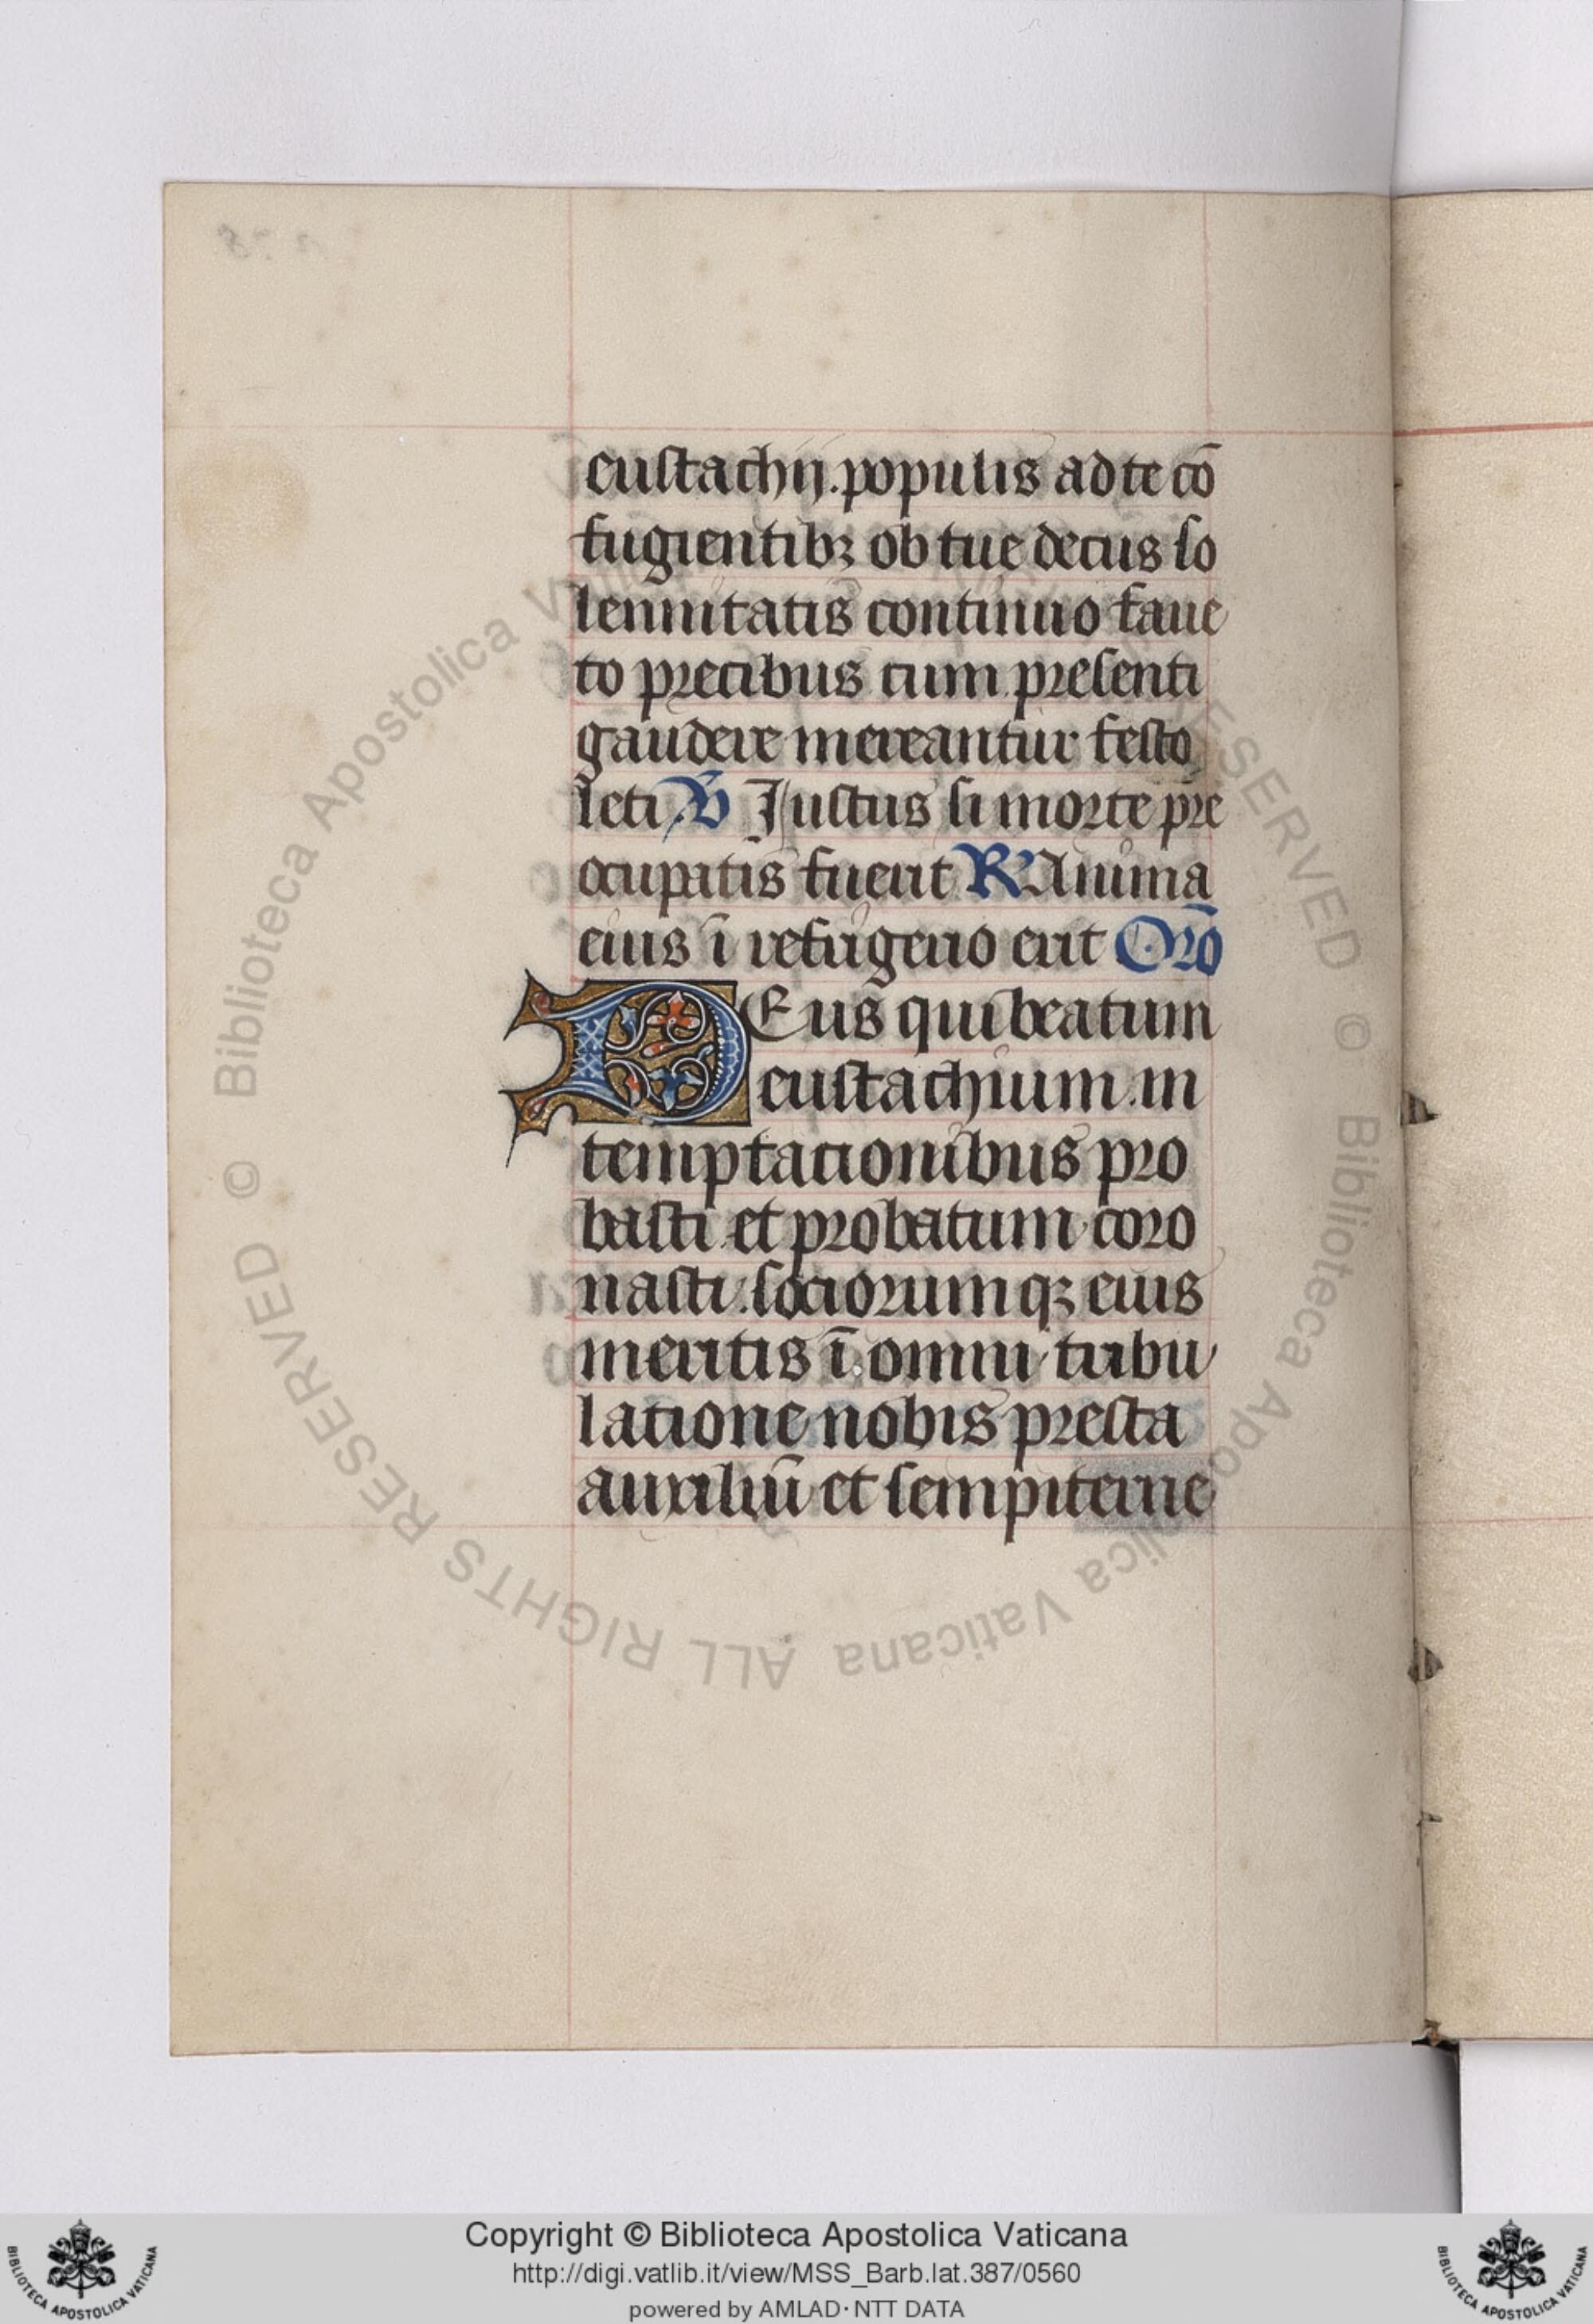 eustachij. populis ad te cō
fugientibꝫ ob tue decus so
lennitatis continuo faue
to precibus cum presenti
gaudere mereantur festo
leti. V̄ Justus si morte pre
ocupatis fuerit R Anima
eius ī refrigerio erit Orō
DEus qui beatum
eustachium in
temptacionibus pro
basti et probatum coro
nasti. sociorumqꝫ eius
meritis ī omni tribu
latione nobis presta
auxiliū et sempiterne
© Biblioteca Apostolica Vaticana ALL RIGHTS RESERVED
© Biblioteca Apostolica Vaticana ALL RIGHTS RESERVED
Copyright © Biblioteca Apostolica Vaticana
http://digi.vatlib.it/view/MSS_Barb.lat.387/0560
powered by AMLAD · NTT DATA
BIBLIOTECA APOSTOLICA VATICANA
BIBLIOTECA APOSTOLICA VATICANA